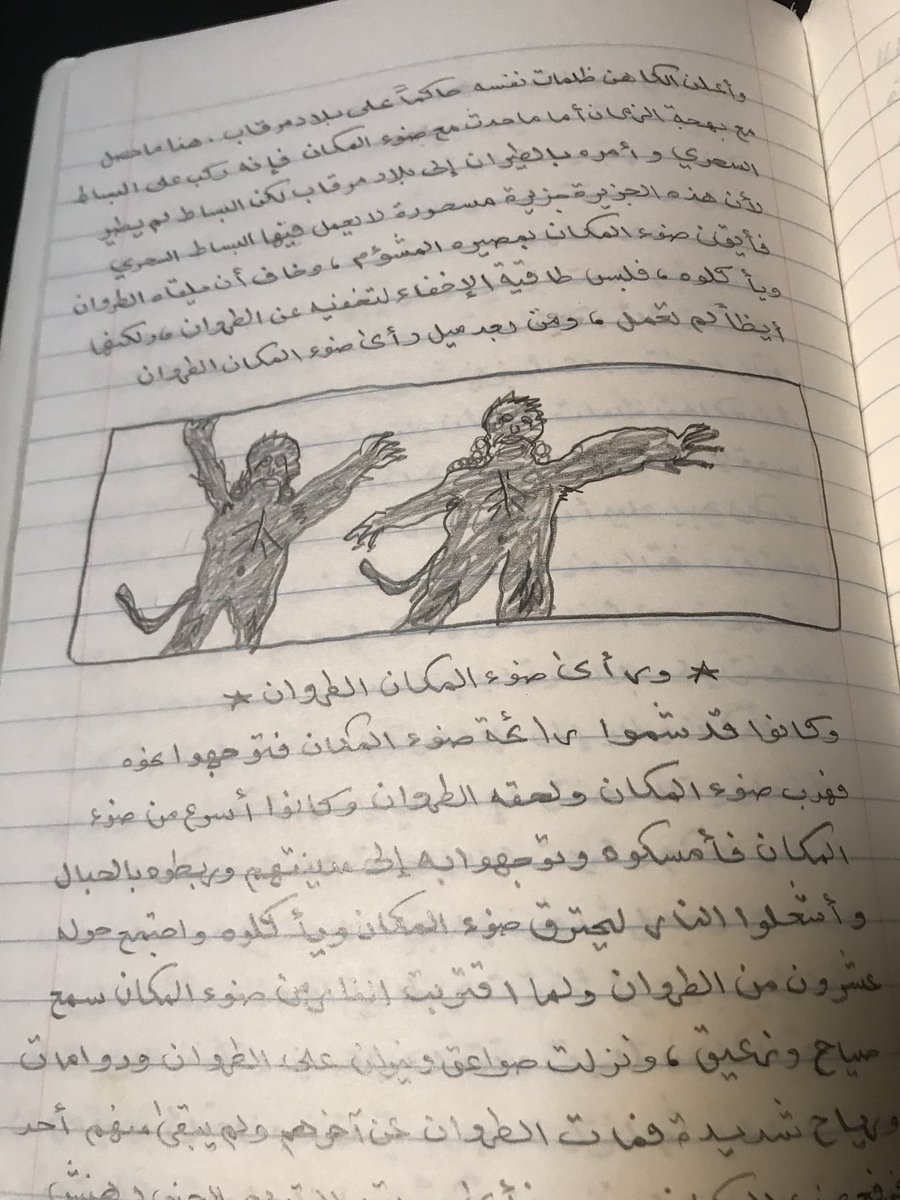 وأعلن الكاهن ظلمات نفسه حاكماً على بلاد مرقاب. هذا ما حصل
مع بهجة الزمان أما ما حدث مع ضوء المكان فإنه ركب على البساط
السحري وأمره بالطيران إلى بلاد مرقاب لكن البساط لم يطير
لأن هذه الجزيرة جزيرة مسحورة لا يعمل فيها البساط السحري
فأيقن ضوء المكان بمصيره المشؤم، وخاف أن يلقاه الطروان
ويأكلوه، فلبس طاقية الإخفاء لتخفيه عن الطروان، ولكنها
أيظاً لم تعمل، ومن بعد ميل رأى ضوء المكان الطروان
* ورأى ضوء المكان الطروان *
وكانوا قد شموا رائحة ضوء المكان فتوجهوا نحوه
فهرب ضوء المكان ولحقه الطروان وكانوا أسرع من ضوء
المكان فأمسكوه وتوجهوا به إلى مدينتهم وربطوه بالحبال
وأشعلوا النار ليحترق ضوء المكان ويأكلوه واجتمع حوله
عشرون من الطروان ولما اقتربت النار من ضوء المكان سمع
صياح ونعيق، ونزلت صواعق ونيران على الطروان ودوامات
ورياح شديدة فمات الطروان عن آخرهم ولم يبقى منهم أحد